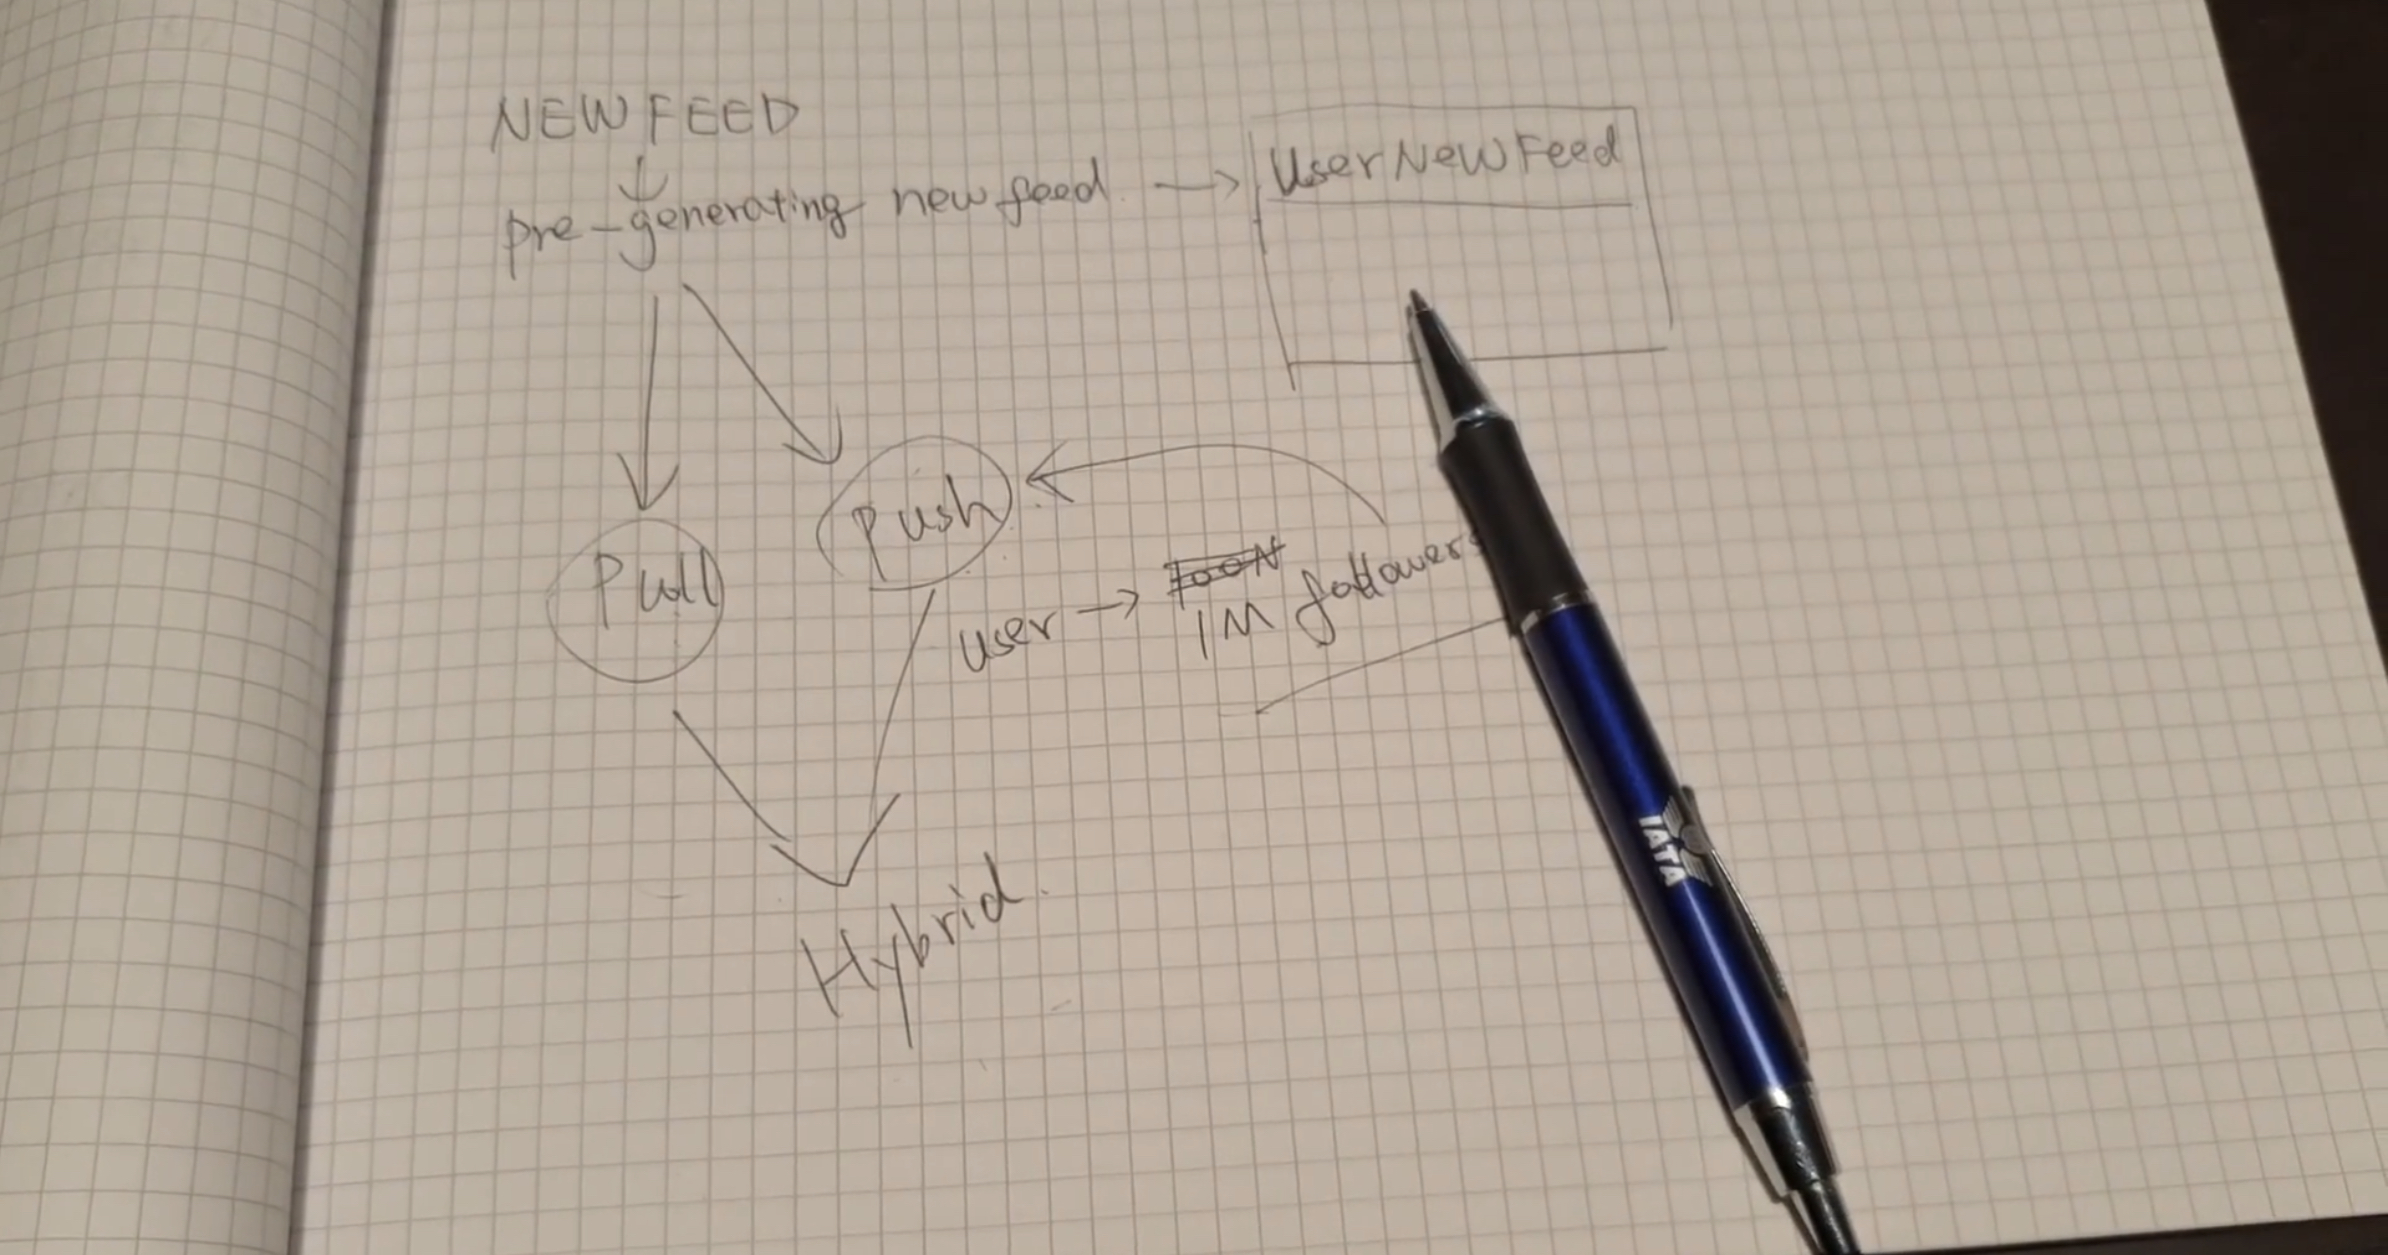 NEW FEED
pre-generating new feed
User New Feed
Push
Pull
user → 1M followers
Hybrid.
IATA